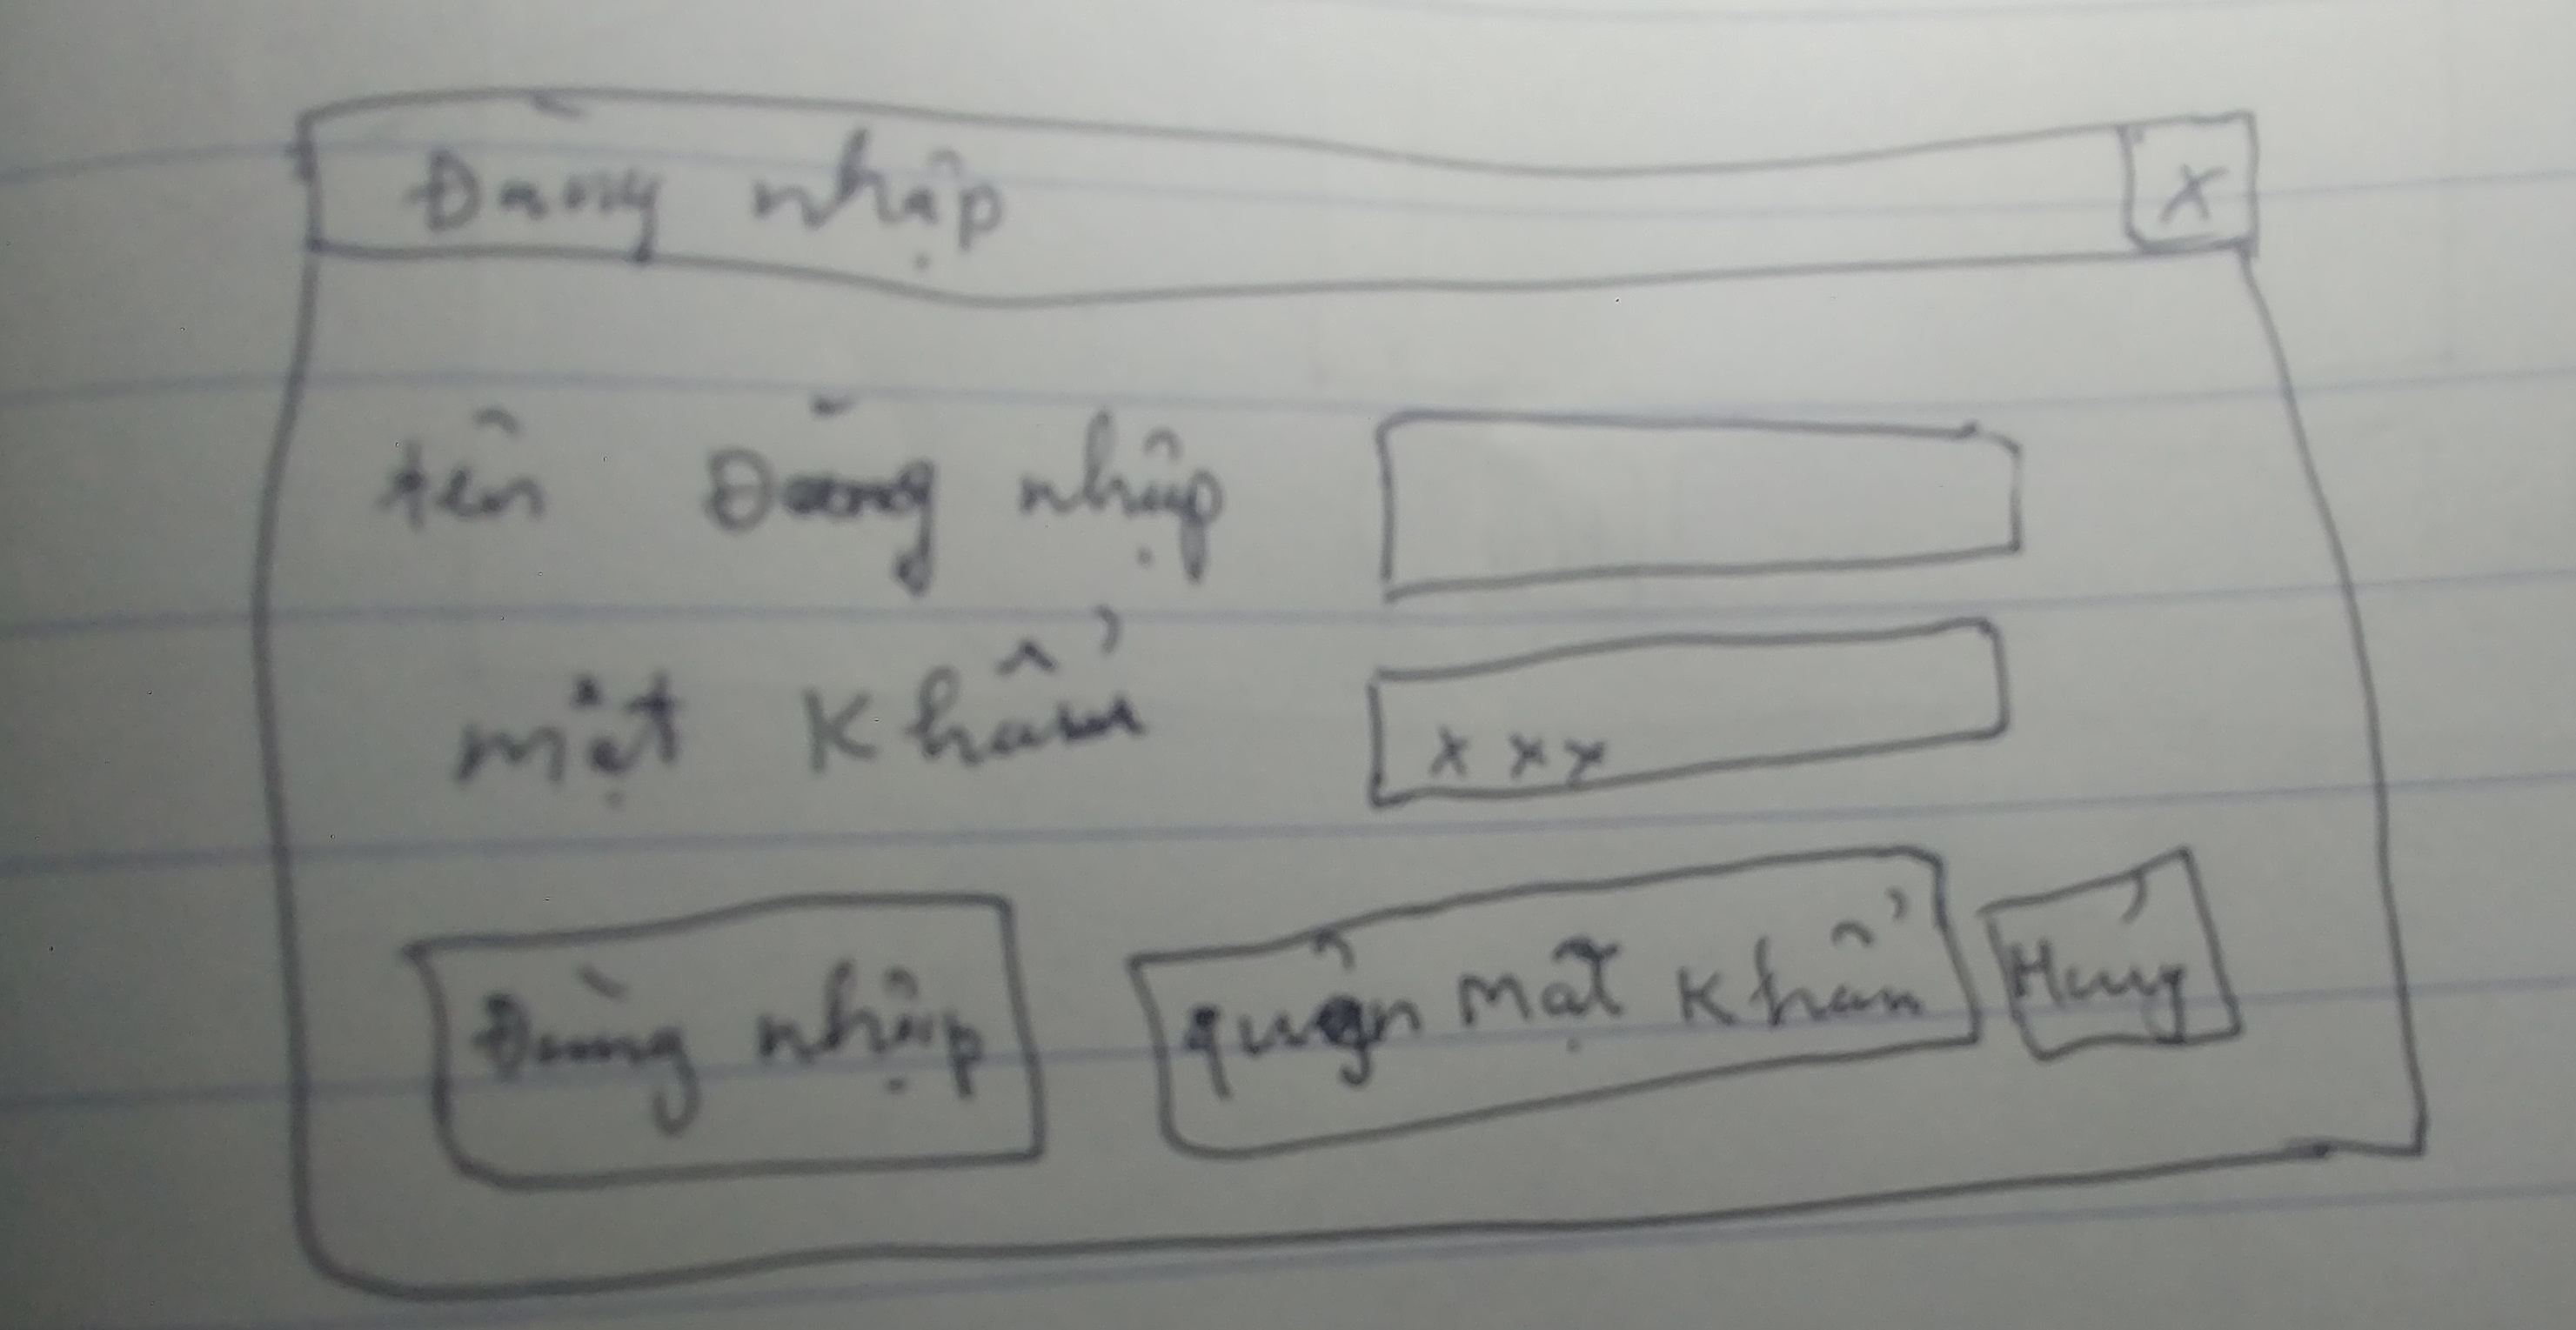 Đăng nhập x
tên Đăng nhập
mật Khẩu
x x x
Đăng nhập quên mật khẩu Huỷ